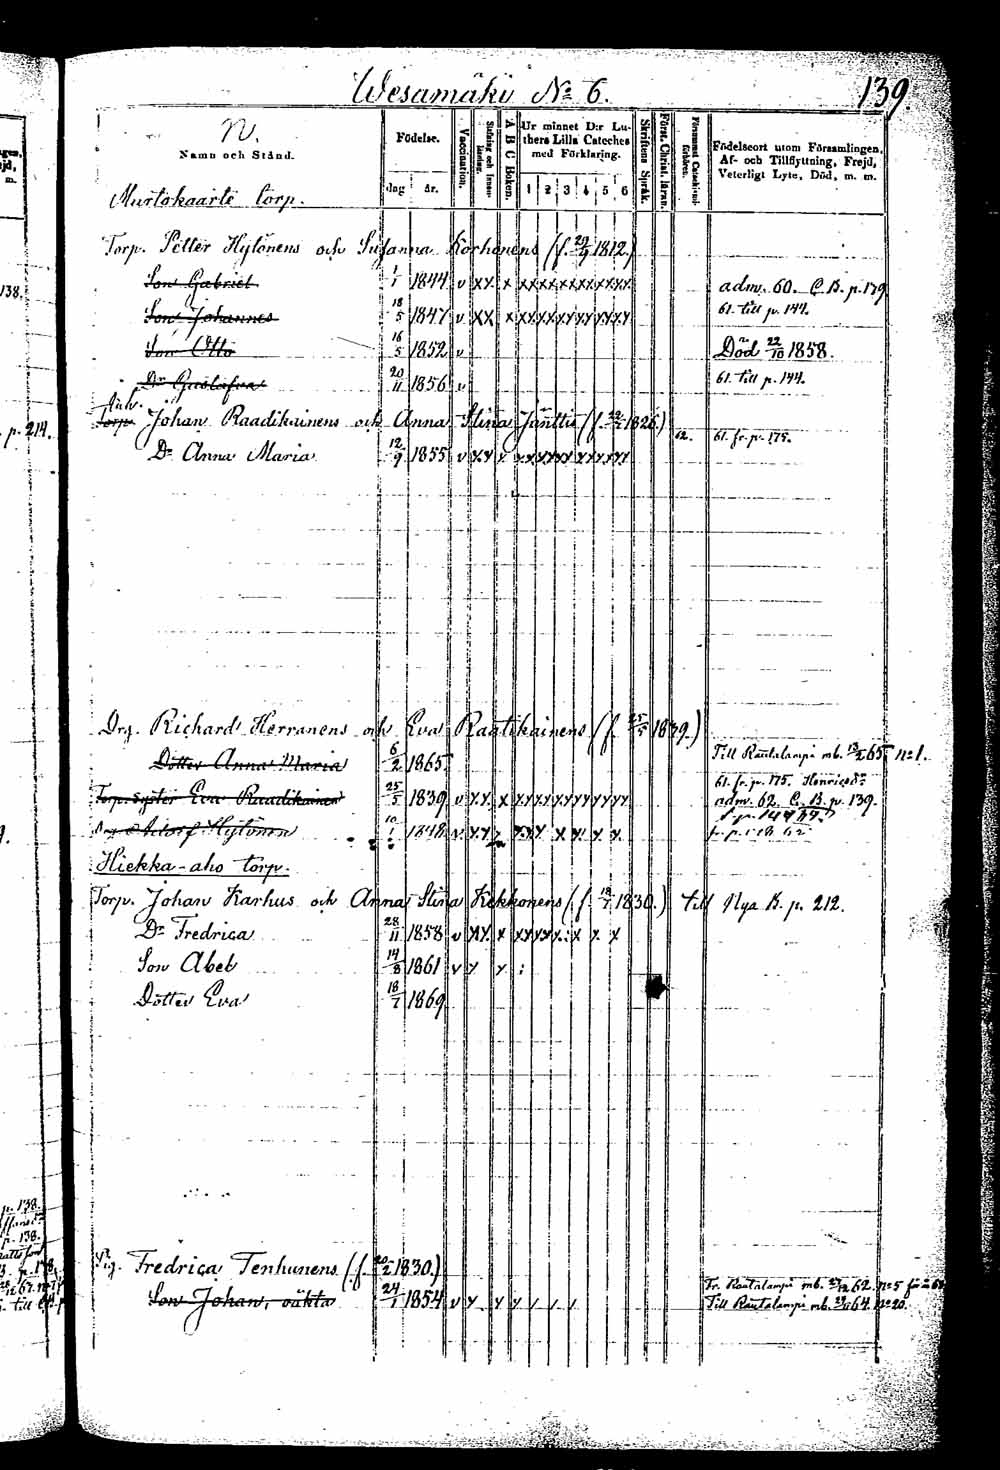 Wesamäki No 6. 139
N.
Namn och Stånd.
Födelse.
dag år.
Vaccination.
A B C Boken.
Ur minnet D:r Luthers Lilla Cateches med Förklaring.
1 2 3 4 5 6
Skriftens Språk.
Först. Christ. läran.
Födelseort utom Församlingen,
Af- och Tillflyttning, Frejd,
Veterligt Lyte, Död, m. m.
Murtokaarte torp.
Torp. Petter Hytönens och Susanna Korhonens (f. 29/9 1812.)
Son Gabriel 1/1 1844 v xx x xxxxxxxxxxx adm. 60. C.B. p. 139
Son Johannes 18/5 1847 v xx x xxxxxxxxxxx 61. till p. 144.
Son Otto 16/5 1852 v Död 22/10 1858.
Dr Gustafva 20/11 1856 v 61. till p. 144.
Inh.
Torp. Johan Raadikainens och Anna Stina Jänttis (f. 22/2 1826.) 62. 61. fr. p. 175.
Dr Anna Maria 12/9 1855 v xx x xxxxxxxxxxx
Drg. Richard Herranens och Eva Raatikainens (f. 25/5 1839.)
Dotter Anna Maria 6/2 1865 Till Rautalampi mb. 65. no 1.
61. fr. p. 175.
Torp. syster Eva Raadikainen 25/5 1839 v xx x xxxxxxxxxxx adm. 62. C. B. p. 139.
Adolf Hytönen 10/1 1848
Hiekka-aho torp.
Torp. Johan Karhus och Anna Stina Kekkonens (f. 1830.) till Nya B. p. 212.
Dr Fredrica 28/11 1858 v xx x xxxxx x x x
Son Abel 14/8 1861 v x x
Dotter Eva 18/7 1869
Pig. Fredrica Tenhunens (f. 20/2 1830.)
Fr. Rautalampi mb. 62. no 5
Son Johan, oäkta 24/1 1854 v Till Rautalampi mb. 64. no 20.
138.
p. 214.
p. 138.
p. 138.